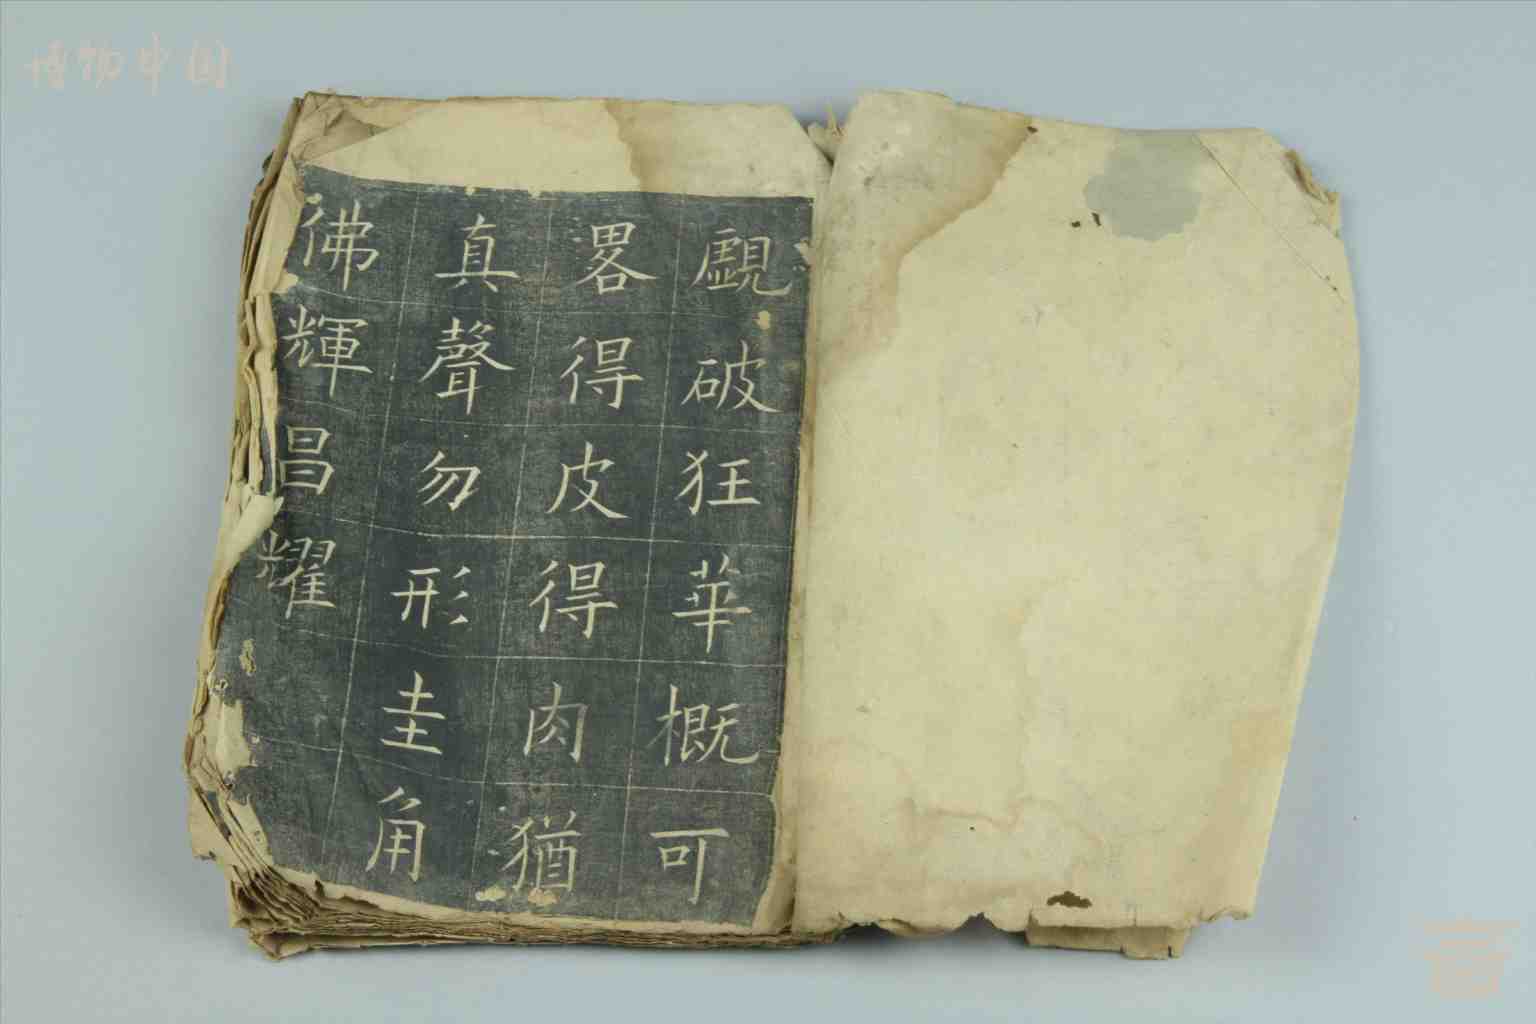 博物中国
覷破狂華概可
畧得皮得肉猶
真聲勿形圭角
佛輝昌耀